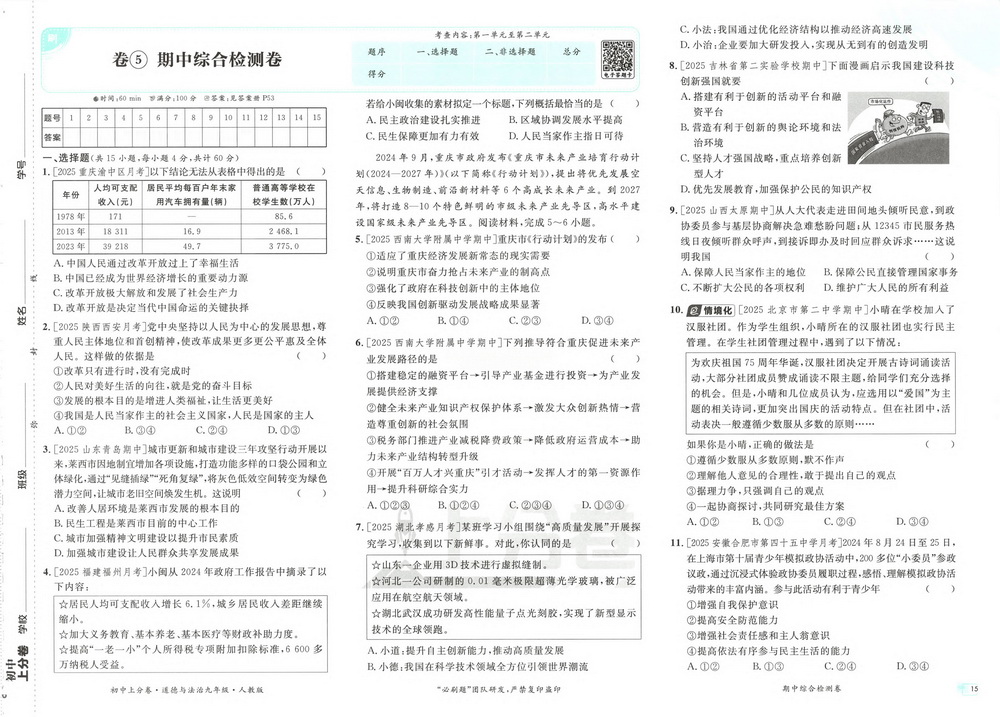 卷⑤ 期中综合检测卷
考查内容：第一单元至第二单元
题序 一、选择题 二、非选择题 总分
得分
电子答题卡
时间：60 min 满分：100分 答案：见答案册P53
题号 1 2 3 4 5 6 7 8 9 10 11 12 13 14 15
答案
一、选择题（共15小题，每小题4分，共计60分）
1.［2025重庆渝中区月考］以下结论无法从表格中得出的是（ ）
年份 人均可支配收入（元） 居民平均每百户年末家用汽车拥有量（辆） 普通高等学校在校学生数（万人）
1978年 171 — 85.6
2013年 18 311 16.9 2 468.1
2023年 39 218 49.7 3 775.0
A. 中国人民通过改革开放过上了幸福生活
B. 中国已经成为世界经济增长的重要动力源
C. 改革开放极大解放和发展了社会生产力
D. 改革开放是决定当代中国命运的关键抉择
2.［2025陕西西安月考］党中央坚持以人民为中心的发展思想，尊
重人民主体地位和首创精神，使改革成果更多更公平惠及全体
人民。这样做的依据是（ ）
①改革只有进行时，没有完成时
②人民对美好生活的向往，就是党的奋斗目标
③发展的根本目的是增进人类福祉，让生活更美好
④我国是人民当家作主的社会主义国家，人民是国家的主人
A. ①② B. ①③ C. ②④ D. ①③
3.［2025山东青岛期中］城市更新和城市建设三年攻坚行动开展以
来，莱西市因地制宜增加各项设施，打造功能多样的口袋公园和立
体绿化，通过“见缝插绿”“死角复绿”，将灰色低效空间转变为绿色
潜力空间，让城市老旧空间焕发生机。这说明（ ）
A. 改善人居环境是莱西市发展的根本目的
B. 民生工程是莱西市目前的中心工作
C. 城市加强精神文明建设以提升市民素质
D. 加强城市建设让人民群众共享发展成果
4.［2025福建福州月考］小闽从2024年政府工作报告中摘录了以
下内容：
☆居民人均可支配收入增长6.1%，城乡居民收入差距继续
缩小。
☆加大义务教育、基本养老、基本医疗等财政补助力度。
☆提高“一老一小”个人所得税专项附加扣除标准，6 600多
万纳税人受益。
初中上分卷·道德与法治九年级·人教版
若给小闽收集的素材拟定一个标题，下列概括最恰当的是（ ）
A. 民主政治建设扎实推进 B. 区域协调发展水平提高
C. 民生保障更加有力有效 D. 人民当家作主指日可待
2024年9月，重庆市政府发布《重庆市未来产业培育行动计
划（2024—2027年）》（以下简称《行动计划》），提出将优先发展空
天信息、生物制造、前沿新材料等6个高成长未来产业。到2027
年，将打造8—10个特色鲜明的市级未来产业先导区，高水平建
设国家级未来产业先导区。阅读材料，完成5～6小题。
5.［2025西南大学附属中学期中］重庆市《行动计划》的发布（ ）
①适应了重庆经济发展新常态的现实需要
②说明重庆市奋力抢占未来产业的制高点
③强化了政府在科技创新中的主体地位
④反映我国创新驱动发展战略成果显著
A. ①② B. ①④ C. ②③ D. ③④
6.［2025西南大学附属中学期中］下列推导符合重庆促进未来产
业发展路径的是（ ）
①搭建稳定的融资平台→引导产业基金进行投资→为产业发
展提供经济支撑
②健全未来产业知识产权保护体系→激发大众创新热情→营
造尊重创新的社会氛围
③税务部门推进产业减税降费政策→降低政府运营成本→助
力未来产业结构转型升级
④开展“百万人才兴重庆”引才活动→发挥人才的第一资源作
用→提升科研综合实力
A. ①②③ B. ①②④ C. ②③④ D. ①③④
7.［2025湖北孝感月考］某班学习小组围绕“高质量发展”开展探
究学习，收集到以下新鲜事。对此，你认同的是（ ）
☆山东一企业用3D技术进行虚拟缝制。
☆河北一公司研制的0.01毫米极限超薄光学玻璃，被广泛
应用在航空航天领域。
☆湖北武汉成功研发高性能量子点光刻胶，实现了新型显示
技术的全球领跑。
A. 小道：提升自主创新能力，推动高质量发展
B. 小德：我国在科学技术领域全方位引领世界潮流
“必刷题”团队研发，严禁复印盗印
C. 小法：我国通过优化经济结构以推动经济高速发展
D. 小治：企业要加大研发投入，实现从无到有的创造发明
8.［2025吉林省第二实验学校期中］下面漫画启示我国建设科技
创新强国就要（ ）
A. 搭建有利于创新的活动平台和融
资平台
B. 营造有利于创新的舆论环境和法
治环境
C. 坚持人才强国战略，重点培养创新
型人才
D. 优先发展教育，加强保护公民的知识产权
9.［2025山西太原期中］从人大代表走进田间地头倾听民意，到政
协委员参与基层协商解决急难愁盼问题；从12345市民服务热
线日夜倾听群众呼声，到接诉即办及时回应群众诉求……这说
明我国（ ）
A. 保障人民当家作主的地位 B. 保障公民直接管理国家事务
C. 不断扩大公民的各项权利 D. 维护广大人民的所有利益
10. 情境化［2025北京市第二中学期中］小晴在学校加入了
汉服社团。作为学生组织，小晴所在的汉服社团也实行民主
管理。在学生社团管理过程中，遇到了以下情况：
为欢庆祖国75周年华诞，汉服社团决定开展古诗词诵读活
动，大部分社团成员赞成诵读不限主题，给同学们充分选择
的机会。但是，小晴和几位成员认为，应选用以“爱国”为主
题的相关诗词，更加突出国庆的活动特点。但在社团中，活
动表决一般遵循少数服从多数的原则……
如果你是小晴，正确的做法是（ ）
①遵循少数服从多数原则，默不作声
②理解他人意见的合理性，敢于提出自己的观点
③据理力争，只强调自己的观点
④一起协商探讨，共同研究最佳方案
A. ①② B. ①③ C. ②④ D. ③④
11.［2025安徽合肥市第四十五中学月考］2024年8月24日至25日，
在上海市第十届青少年模拟政协活动中，200多位“小委员”参政
议政，通过沉浸式体验政协委员履职过程，感悟、理解模拟政协活
动带来的丰富内涵。参与此活动有利于青少年（ ）
①增强自我保护意识
②提高安全防范能力
③增强社会责任感和主人翁意识
④提高依法有序参与民主生活的能力
A. ①② B. ①③ C. ②④ D. ③④
期中综合检测卷 15
学号
姓名
班级
学校
线
封
初中
上分卷